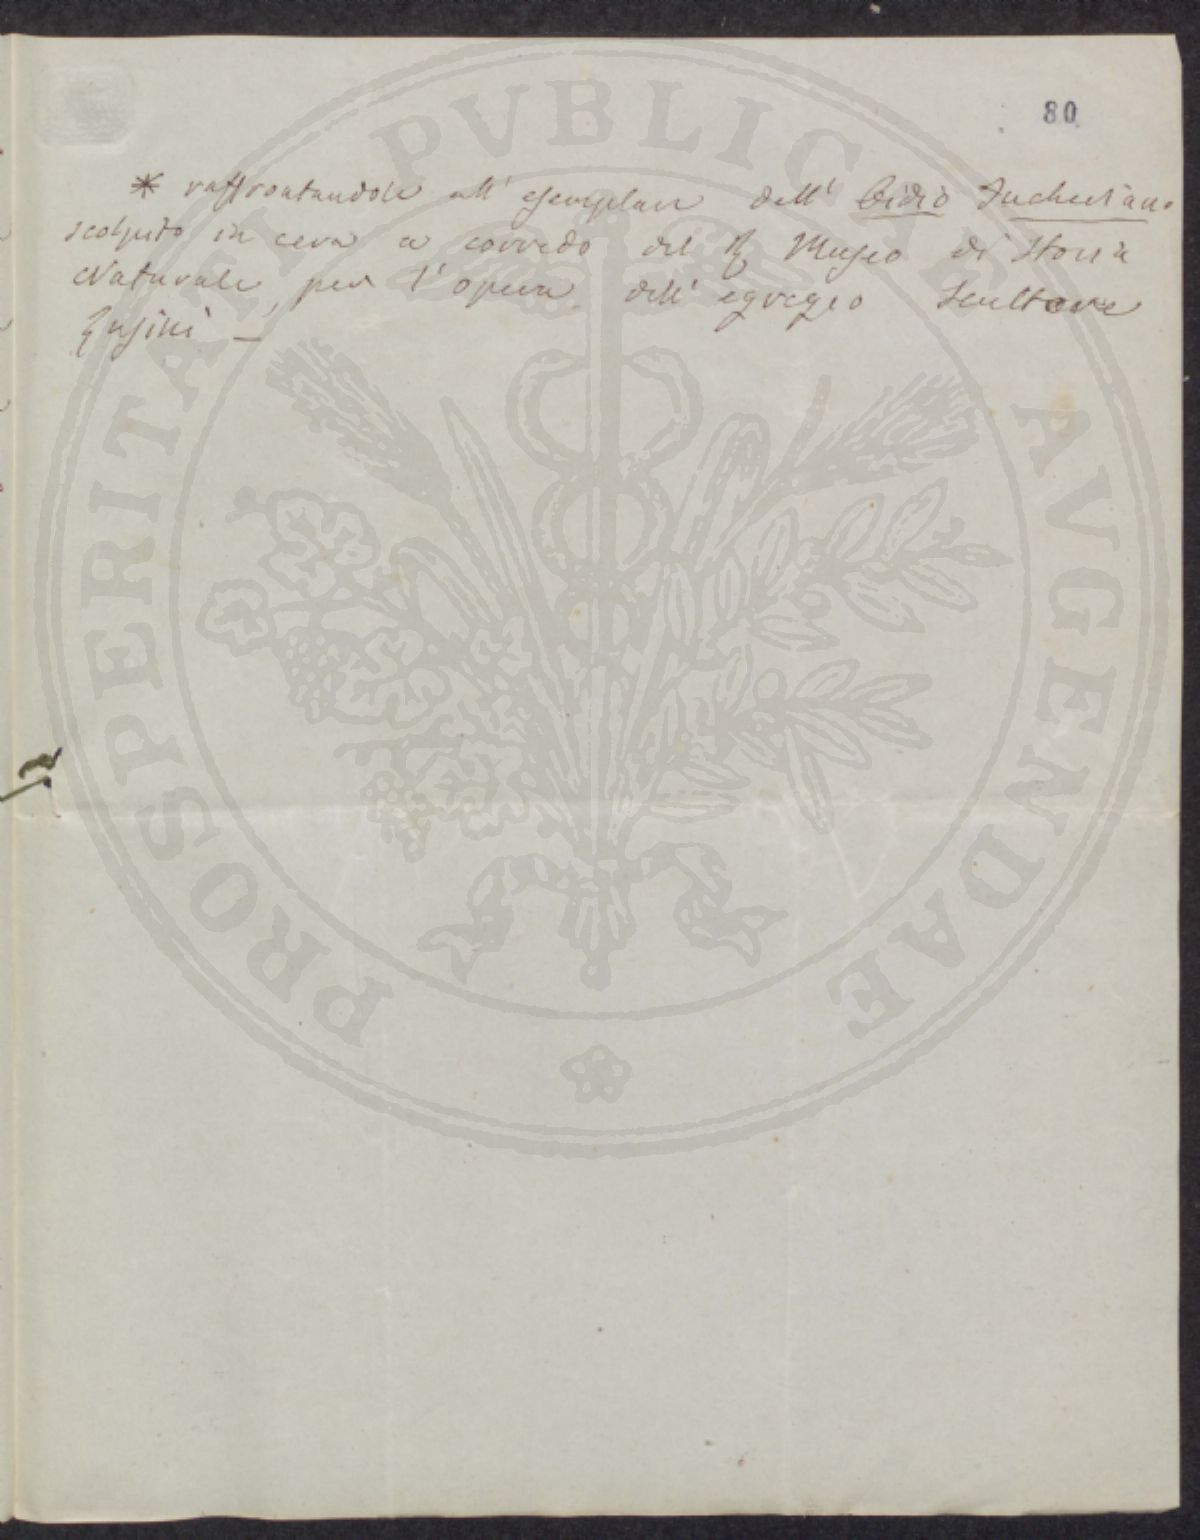 80
* raffrontandole all' esemplare dell' Oidio Tuckeriano
scolpito in cera a corredo del R Museo di Storia
Naturale, per l' opera dell' egregio Scultore
PROSPERITATI PVBLICAE AVGENDAE